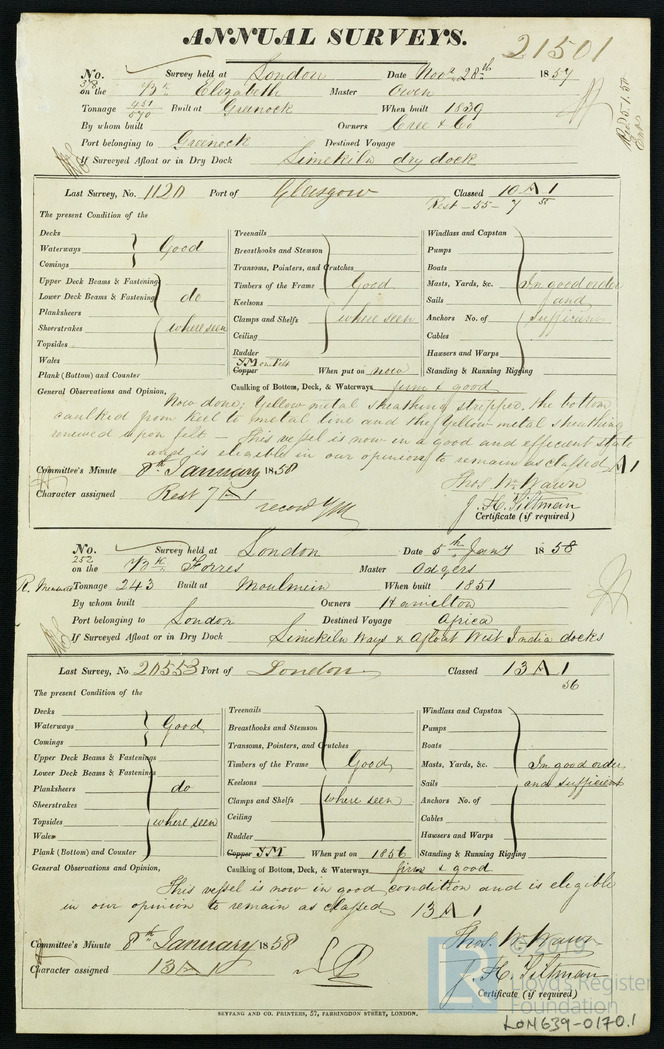 ANNUAL SURVEYS.
21501
No. 58 Survey held at London Date Novr 28th 1857
on the Bk Elizabeth Master Owen
Tonnage 451/570 Built at Greenock When built 1839
By whom built Owners Cree & Co
Port belonging to Greenock Destined Voyage
If Surveyed Afloat or in Dry Dock Limekiln dry dock
Last Survey, No. 1120 Port of Glasgow Classed 10 A 1
Rest - 55 - 7
The present Condition of the
Decks
Waterways Good
Comings
Upper Deck Beams & Fastenings
Lower Deck Beams & Fastenings do
Planksheers
Sheerstrakes where seen
Topsides
Wales
Plank (Bottom) and Counter
Treenails
Breasthooks and Stemson
Transoms, Pointers, and Crutches
Timbers of the Frame Good
Keelsons
Clamps and Shelfs where seen
Ceiling
Rudder
YM on Felt
Copper When put on now
Windlass and Capstan
Pumps
Boats
Masts, Yards, &c. In good order
Sails and
Anchors No. of sufficient
Cables
Hawsers and Warps
Standing & Running Rigging
Caulking of Bottom, Deck, & Waterways firm & good
General Observations and Opinion,
Now done; Yellow metal sheathing stripped, the bottom
caulked from keel to metal line and the Yellow metal sheathing
renewed upon felt - This vessel is now in a good and efficient state
and is eligible in our opinion to remain as classed A 1
Committee's Minute 8th January 1858
Thos. W. Wawn
Character assigned Rest 7 A 1
record YM
J. H. Tillman
Certificate (if required)
No. 252 Survey held at London Date 5th Jany 1858
on the Bk Forres Master Odgers
Tonnage 243 Built at Moulmein When built 1851
By whom built Owners Hamilton
Port belonging to London Destined Voyage Africa
If Surveyed Afloat or in Dry Dock Limekiln Ways & Afloat West India docks
Last Survey, No. 20553 Port of London Classed 13 A 1
56
The present Condition of the
Decks
Waterways Good
Comings
Upper Deck Beams & Fastenings
Lower Deck Beams & Fastenings
Planksheers do
Sheerstrakes
Topsides where seen
Wales
Plank (Bottom) and Counter
Treenails
Breasthooks and Stemson
Transoms, Pointers, and Crutches
Timbers of the Frame Good
Keelsons
Clamps and Shelfs where seen
Ceiling
Rudder
Copper YM When put on 1856
Windlass and Capstan
Pumps
Boats
Masts, Yards, &c. In good order
Sails and sufficient
Anchors No. of
Cables
Hawsers and Warps
Standing & Running Rigging
General Observations and Opinion,
Caulking of Bottom, Deck, & Waterways firm & good
This vessel is now in good condition and is eligible
in our opinion to remain as classed 13 A 1
Committee's Minute 8th January 1858
Thos. W. Wawn
Character assigned 13 A 1
J. H. Tillman
Certificate (if required)
© 2019
Lloyd's Register
Foundation
SEYFANG AND CO. PRINTERS, 57, FARRINGDON STREET, LONDON.
LON639-0170.1